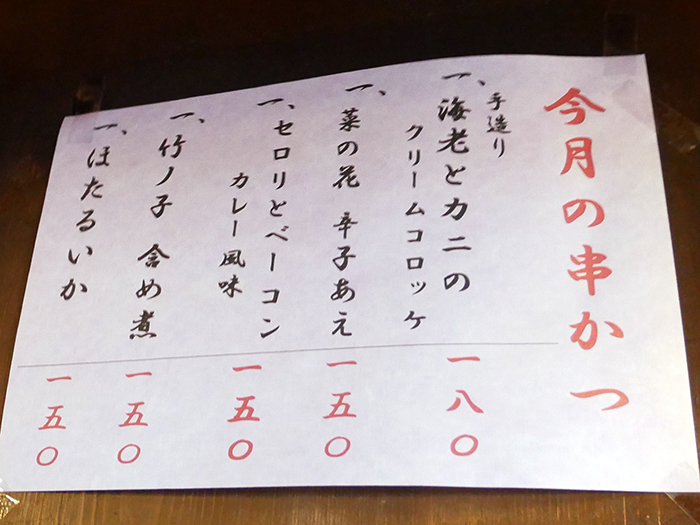 今月の串かつ
一、手造り
海老とカニの
クリームコロッケ
一八〇
一、菜の花 辛子あえ
一五〇
一、セロリとベーコン
カレー風味
一五〇
一、竹ノ子 含め煮
一五〇
一、ほたるいか
一五〇